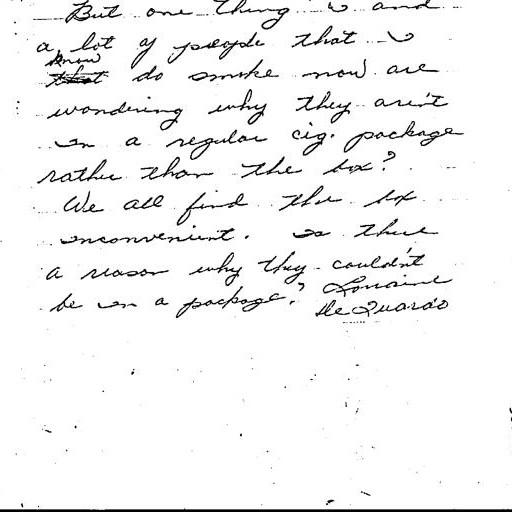 But one thing is and
a lot of people that I
know
that do smoke now are
wondering why they aren't
in a regular cig. package
rather than the box?
We all find the box
inconvenient. Is there
a reason why they couldn't
be in a package? Lorraine
De Guardo